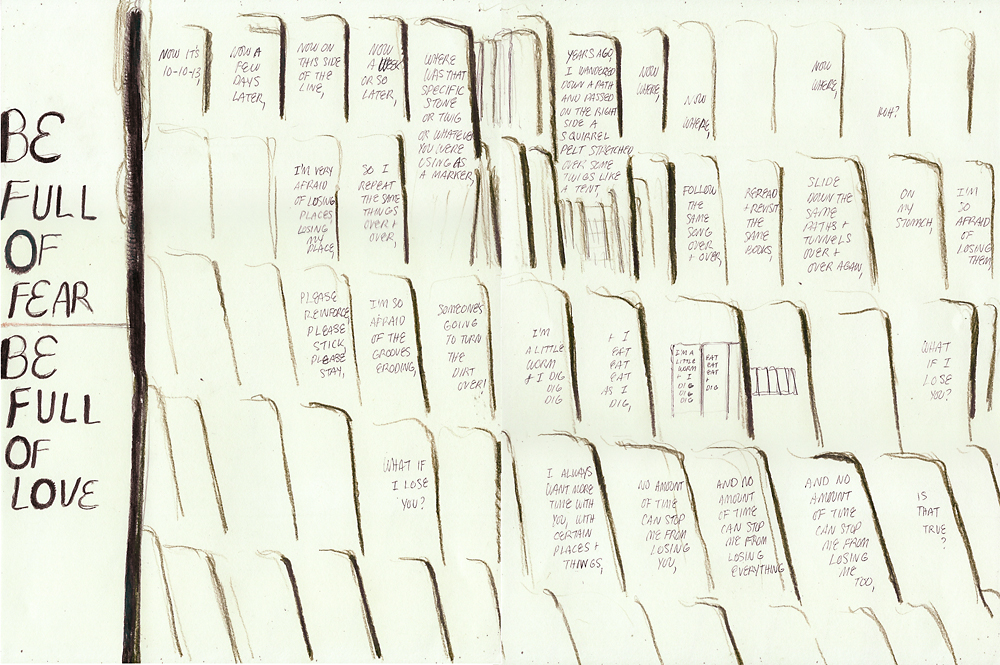 BE
FULL
OF
FEAR
BE
FULL
OF
LOVE
NOW IT'S
10-10-13,
NOW A
FEW
DAYS
LATER,
NOW ON
THIS SIDE
OF THE
LINE,
NOW
A WEEK
OR SO
LATER,
WHERE
WAS THAT
SPECIFIC
STONE
OR TWIG
OR WHATEVER
YOU WERE
USING AS
A MARKER,
YEARS AGO,
I WANDERED
DOWN A PATH
AND PASSED
ON THE RIGHT
SIDE A
SQUIRREL
PELT STRETCHED
OVER SOME
TWIGS LIKE
A TENT,
NOW
WHERE,
NOW
WHERE,
NOW
WHERE,
HUH?
I'M VERY
AFRAID
OF LOSING
PLACES
LOSING
MY
PLACE,
SO I
REPEAT
THE SAME
THINGS
OVER +
OVER,
FOLLOW
THE
SAME
SONG
OVER
+ OVER,
REREAD
+ REVISIT
THE
SAME
BOOKS,
SLIDE
DOWN THE
SAME
PATHS +
TUNNELS
OVER +
OVER AGAIN,
ON
MY
STOMACH,
I'M
SO
AFRAID
OF
LOSING
THEM
PLEASE
REINFORCE
PLEASE
STICK,
PLEASE
STAY,
I'M SO
AFRAID
OF THE
GROOVES
ERODING,
SOMEONE'S
GOING
TO TURN
THE
DIRT
OVER!
I'M
A LITTLE
WORM
+ I DIG
DIG
DIG
+ I
EAT
EAT
EAT
AS I
DIG,
I'M A
LITTLE
WORM
+ I
DIG
DIG
DIG
EAT
EAT
EAT
+
DIG
WHAT
IF I
LOSE
YOU?
WHAT IF
I LOSE
YOU?
I ALWAYS
WANT MORE
TIME WITH
YOU, WITH
CERTAIN
PLACES +
THINGS,
NO AMOUNT
OF TIME
CAN STOP
ME FROM
LOSING
YOU,
AND NO
AMOUNT
OF TIME
CAN STOP
ME FROM
LOSING
EVERYTHING
AND NO
AMOUNT
OF TIME
CAN STOP
ME FROM
LOSING
ME
TOO,
IS
THAT
TRUE
?